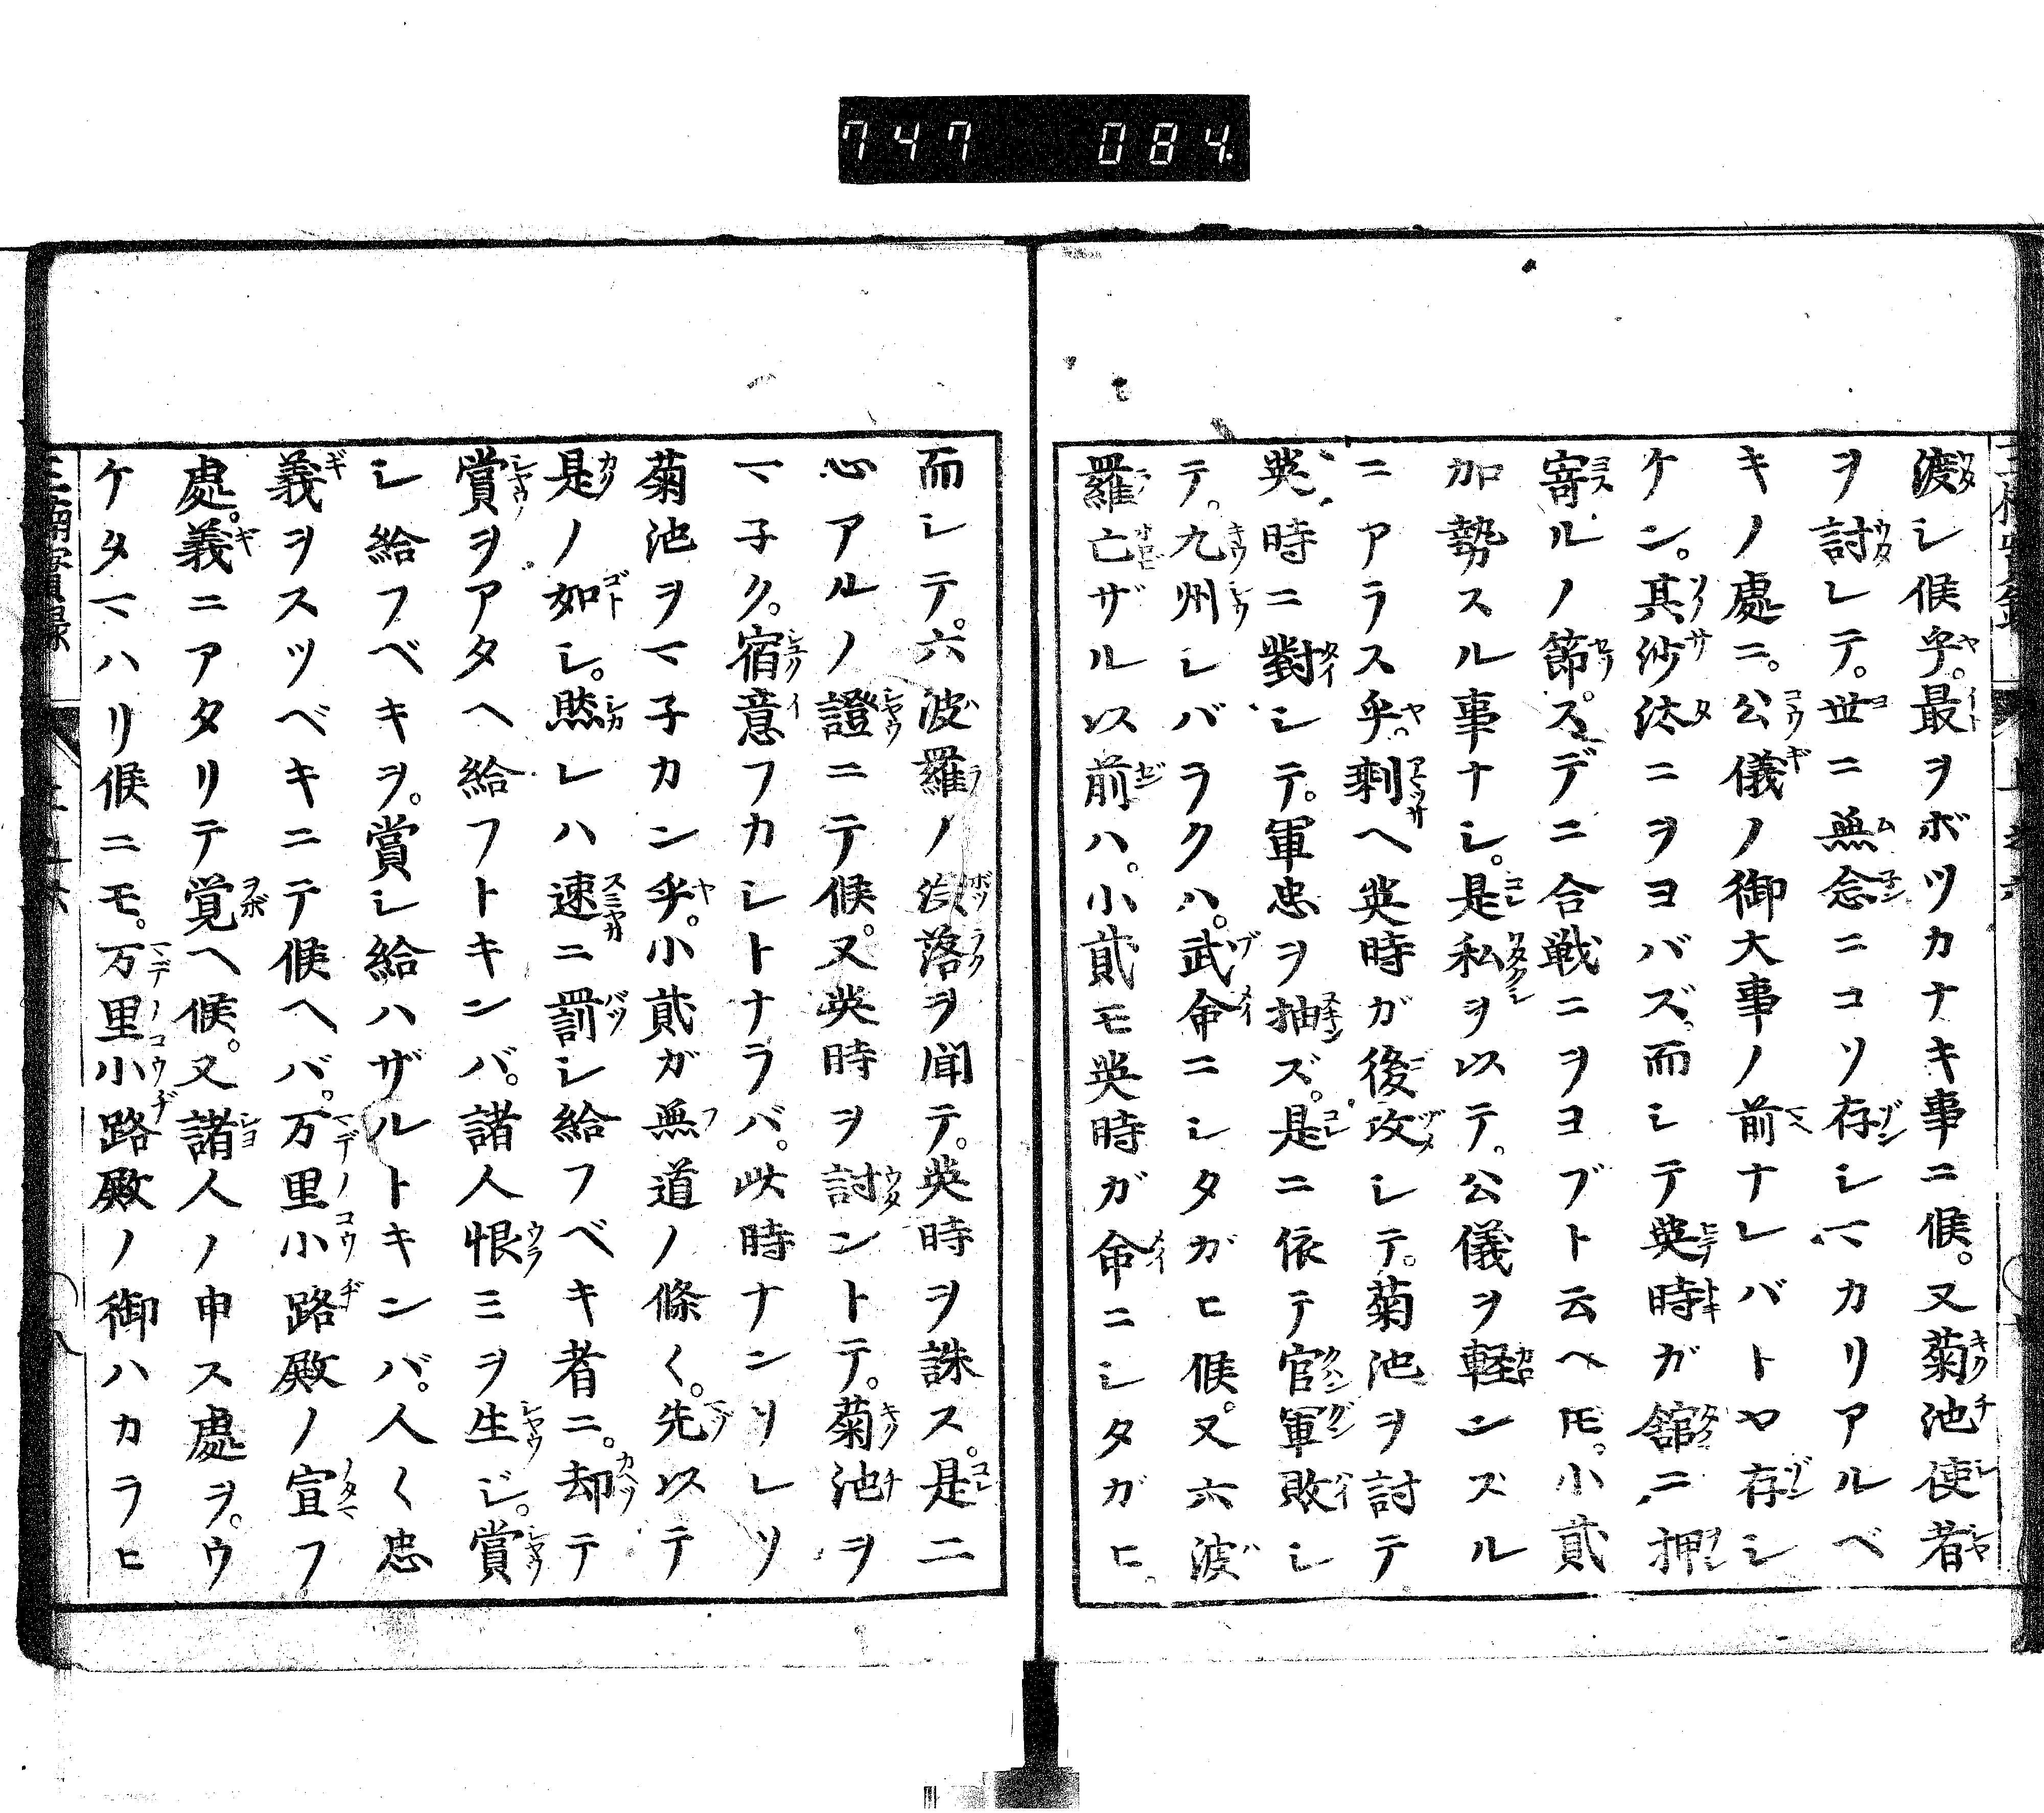 747 084
渡シ候乎。最ヲボツカナキ事ニ候。又菊池使者
ヲ討レテ。世ニ無念ニコソ存シマカリアルベ
キノ處ニ。公儀ノ御大事ノ前ナレバトヤ存シ
ケン。其沙汰ニヲヨバズ。而シテ英時ガ舘ニ押
寄ルノ節。スデニ合戦ニヲヨブト云ヘ𪜈。小貳
加勢スル事ナシ。是私ヲ以テ。公儀ヲ軽ンズル
ニアラス乎。剰ヘ英時ガ後攻シテ。菊池ヲ討テ
英時ニ對シテ。軍忠ヲ抽ズ。是ニ依テ官軍敗シ
テ。九州シバラクハ。武命ニシタガヒ候。又六波
羅亡ザル以前ハ。小貳モ英時ガ命ニシタガヒ。
而シテ。六波羅ノ没落ヲ聞テ。英時ヲ誅ス。是二
心アルノ證ニテ候。又英時ヲ討ントテ。菊池ヲ
マ子ク。宿意フカシトナラバ。此時ナンソレソ
菊池ヲマ子カン乎。小貳ガ無道ノ條〱。先以テ
是ノ如シ。然レハ速ニ罰シ給フベキ者ニ。却テ
賞ヲアタヘ給フトキンバ。諸人恨ミヲ生ジ。賞
シ給フベキヲ。賞シ給ハザルトキンバ。人〱忠
義ヲスツベキニテ候ヘバ。万里小路殿ノ宣フ
處。義ニアタリテ覚ヘ候。又諸人ノ申ス處ヲ。ウ
ケタマハリ候ニモ。万里小路殿ノ御ハカラヒ